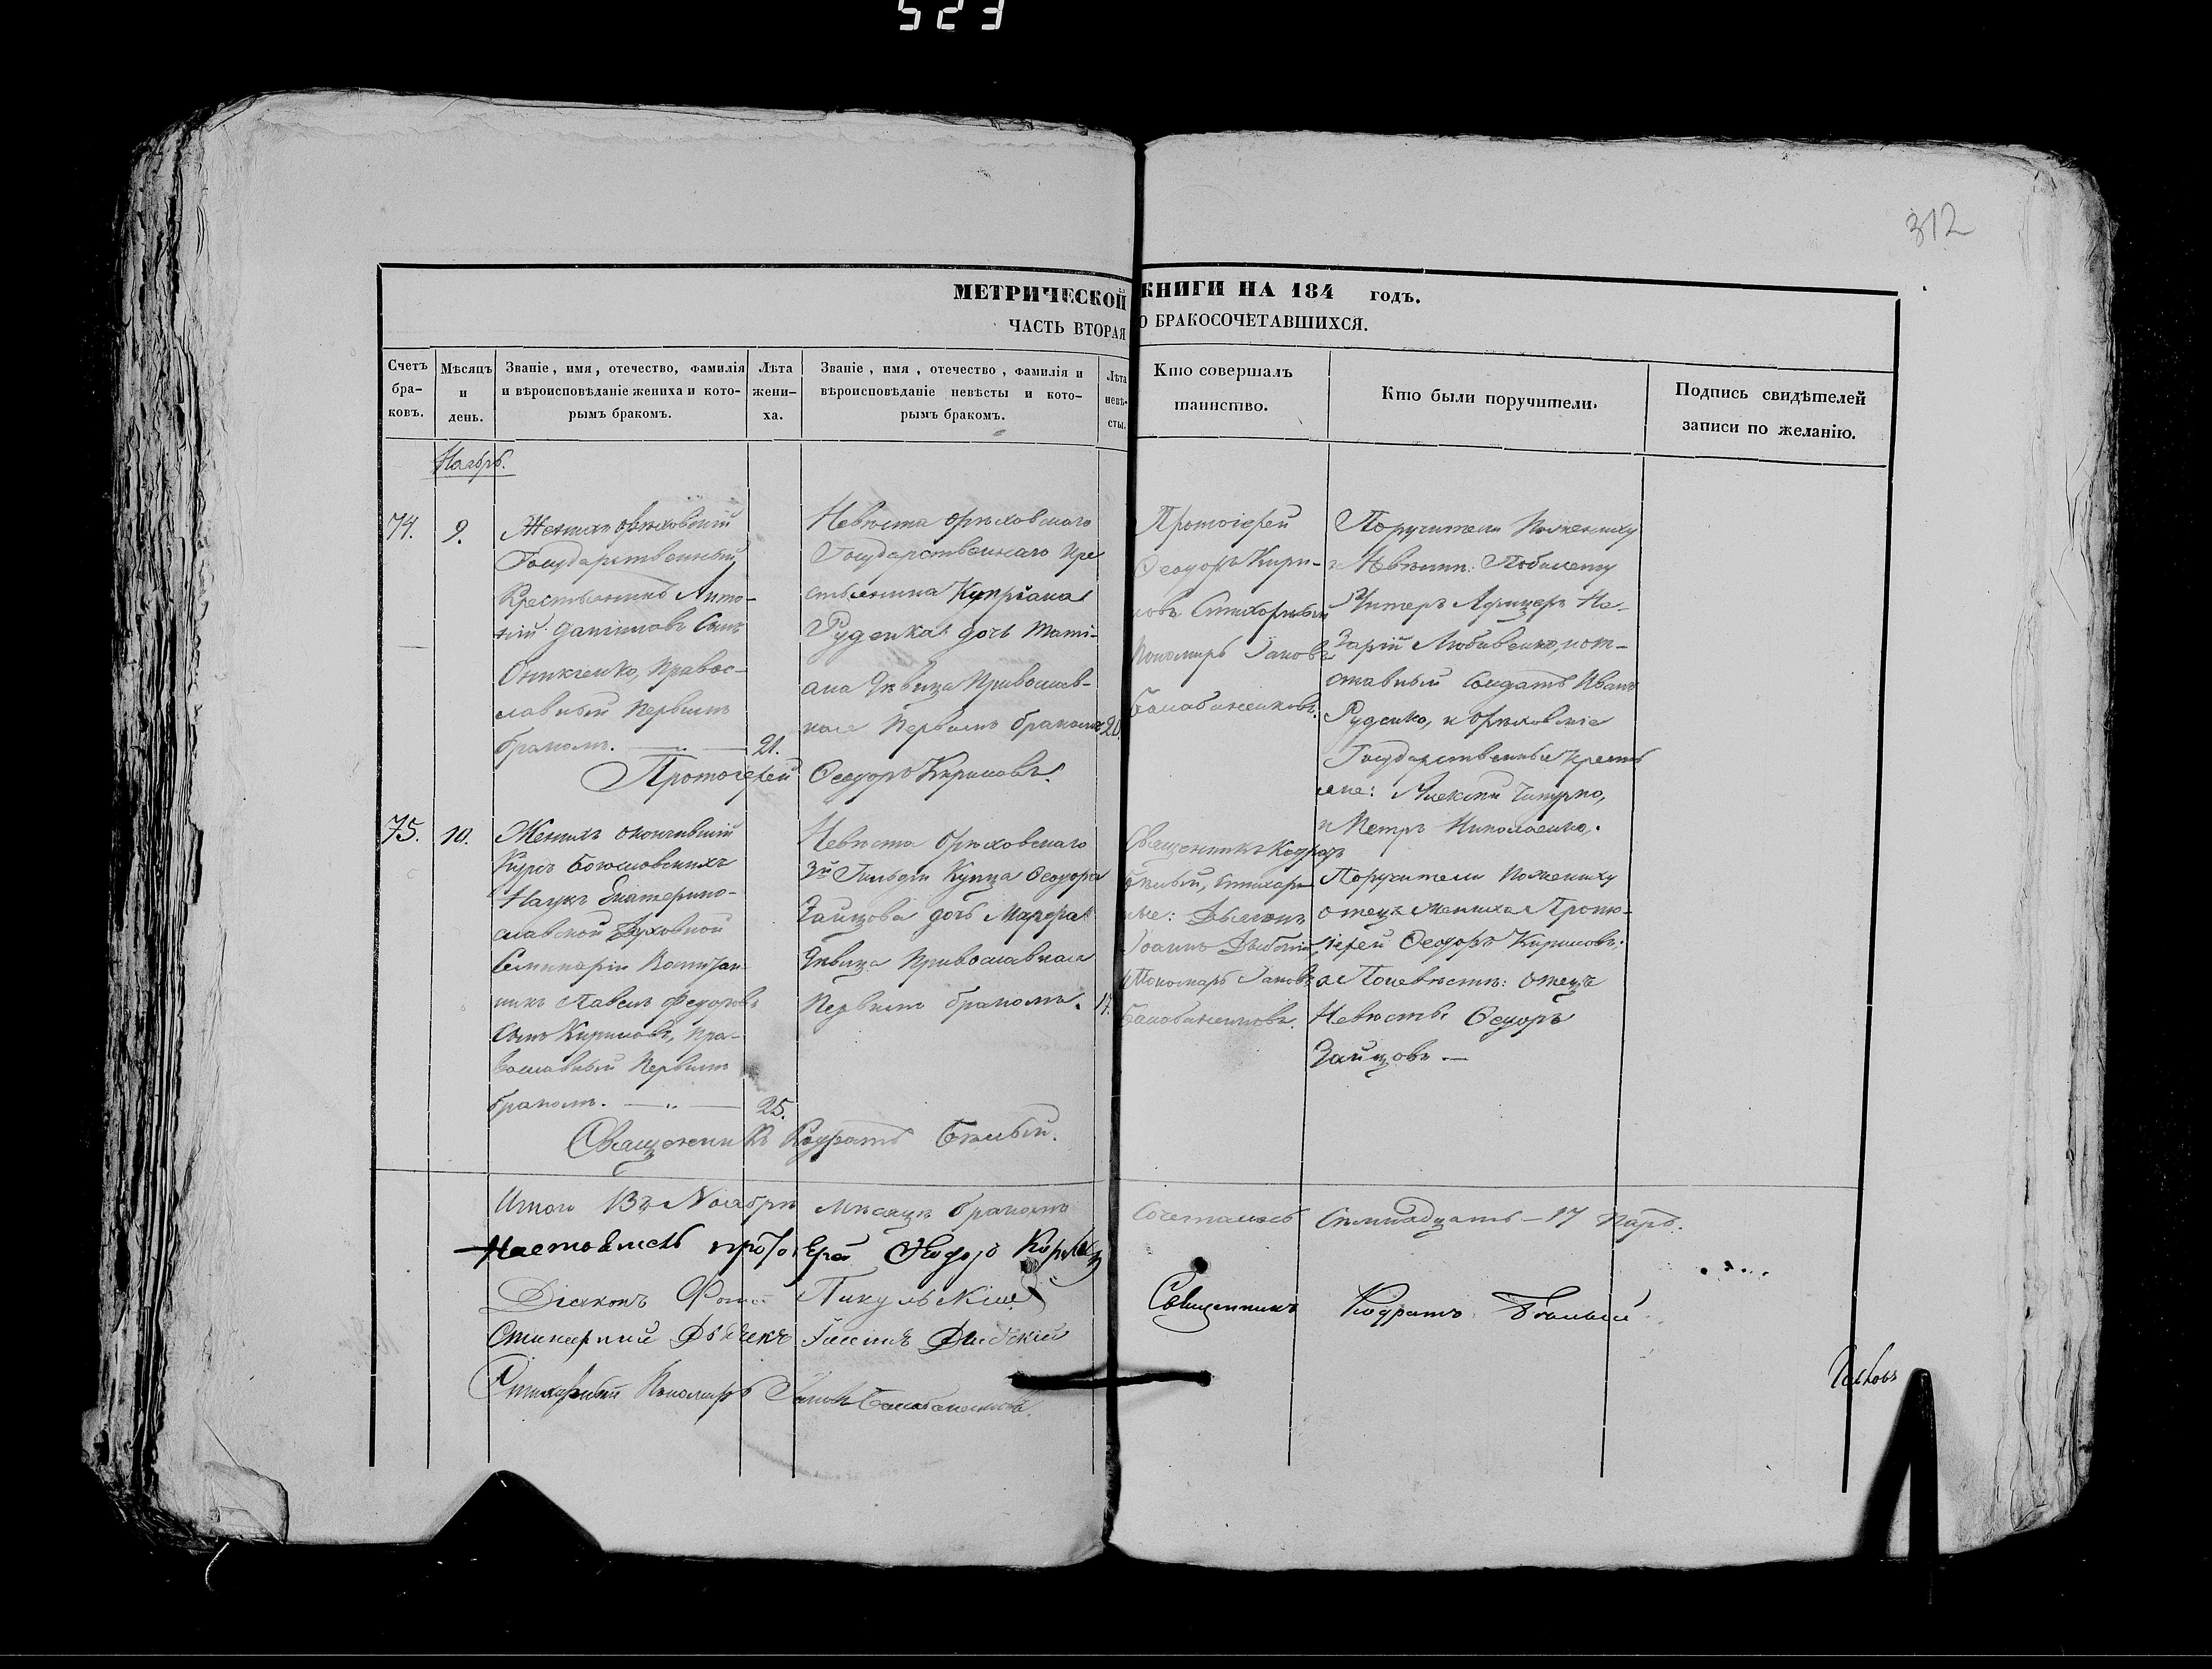 523
312
МЕТРИЧЕСКОЙ КНИГИ НА 184 годъ.
ЧАСТЬ ВТОРАЯ О БРАКОСОЧЕТАВШИХСЯ.
Счетъ браковъ.
Мѣсяцъ и день.
Званіе, имя, отечество, фамилія
и вѣроисповѣданіе жениха и кото-
рымъ бракомъ.
Лѣта
жени-
ха.
Званіе, имя, отечество, фамилія и
вѣроисповѣданіе невѣсты и кото-
рымъ бракомъ.
Лѣта
невѣ-
сты.
Кто совершалъ
таинство.
Кто были поручители.
Подпись свидѣтелей
записи по желанію.
Ноябрь.
74.
9.
Женихъ орѣховскій
Государственный
Крестьянинъ Анто-
ній Даніиловъ Сынъ
православ-
славный первымъ
бракомъ.
21.
Невѣста орѣховскаго
Государственнаго кре
стьянина Кипріана
Руденка дочь Таті-
ана Дѣвица Православ-
ная первымъ бракомъ
20.
Протоіерей
Ѳеодоръ Кири-
ловъ Стихарный
пономарь Іаковъ
Балабаненковъ.
Поручители по женихѣ
и Невѣстѣ:
Унтеръ Афицеръ На-
зарій Любивенко, и от-
ставный Солдатъ Иванъ
Руденко, и орѣховскіе
Государственные крестья
яне: Алексѣй
и Петръ Николаенко.
Протоіерей Ѳеодоръ Кириловъ.
75.
10.
Женихъ окончившій
Курсъ Богословскихъ
Наукъ Екатерино-
славской Духовной
Семинаріи Воспитан-
никъ Павелъ Федоровъ
Сынъ Кириловъ, Пра-
вославный первымъ
бракомъ.
25.
Невѣста Орѣховскаго
3й Гильдіи Купца Ѳеодора
Зайцова дочь Марфа
Дѣвица Православная
Первымъ бракомъ.
17.
Священникъ Кодратъ
Бѣлый, Стихарн
ые: Дьячокъ
Іоаннъ
и Пономарь Іаковъ
Балабаненковъ.
Поручители По женихѣ
отецъ жениха Прото-
іерей Ѳеодоръ Кириловъ:
а По невѣстѣ: отецъ
Невѣсты Ѳедоръ
Зайцовъ.
Священникъ Кодратъ Бѣлый.
Итого Въ Ноябрѣ мѣсяцѣ бракомъ Сочеталось Семнадцать - 17 паръ.
Настоятель протоіерей Ѳеодоръ Кириловъ
Діаконъ Пикульскій
Священникъ Кодратъ Бѣлый
Стихарный Дьячекъ Іоаннъ
Стихарный Пономарь Іаковъ Балабаненковъ.